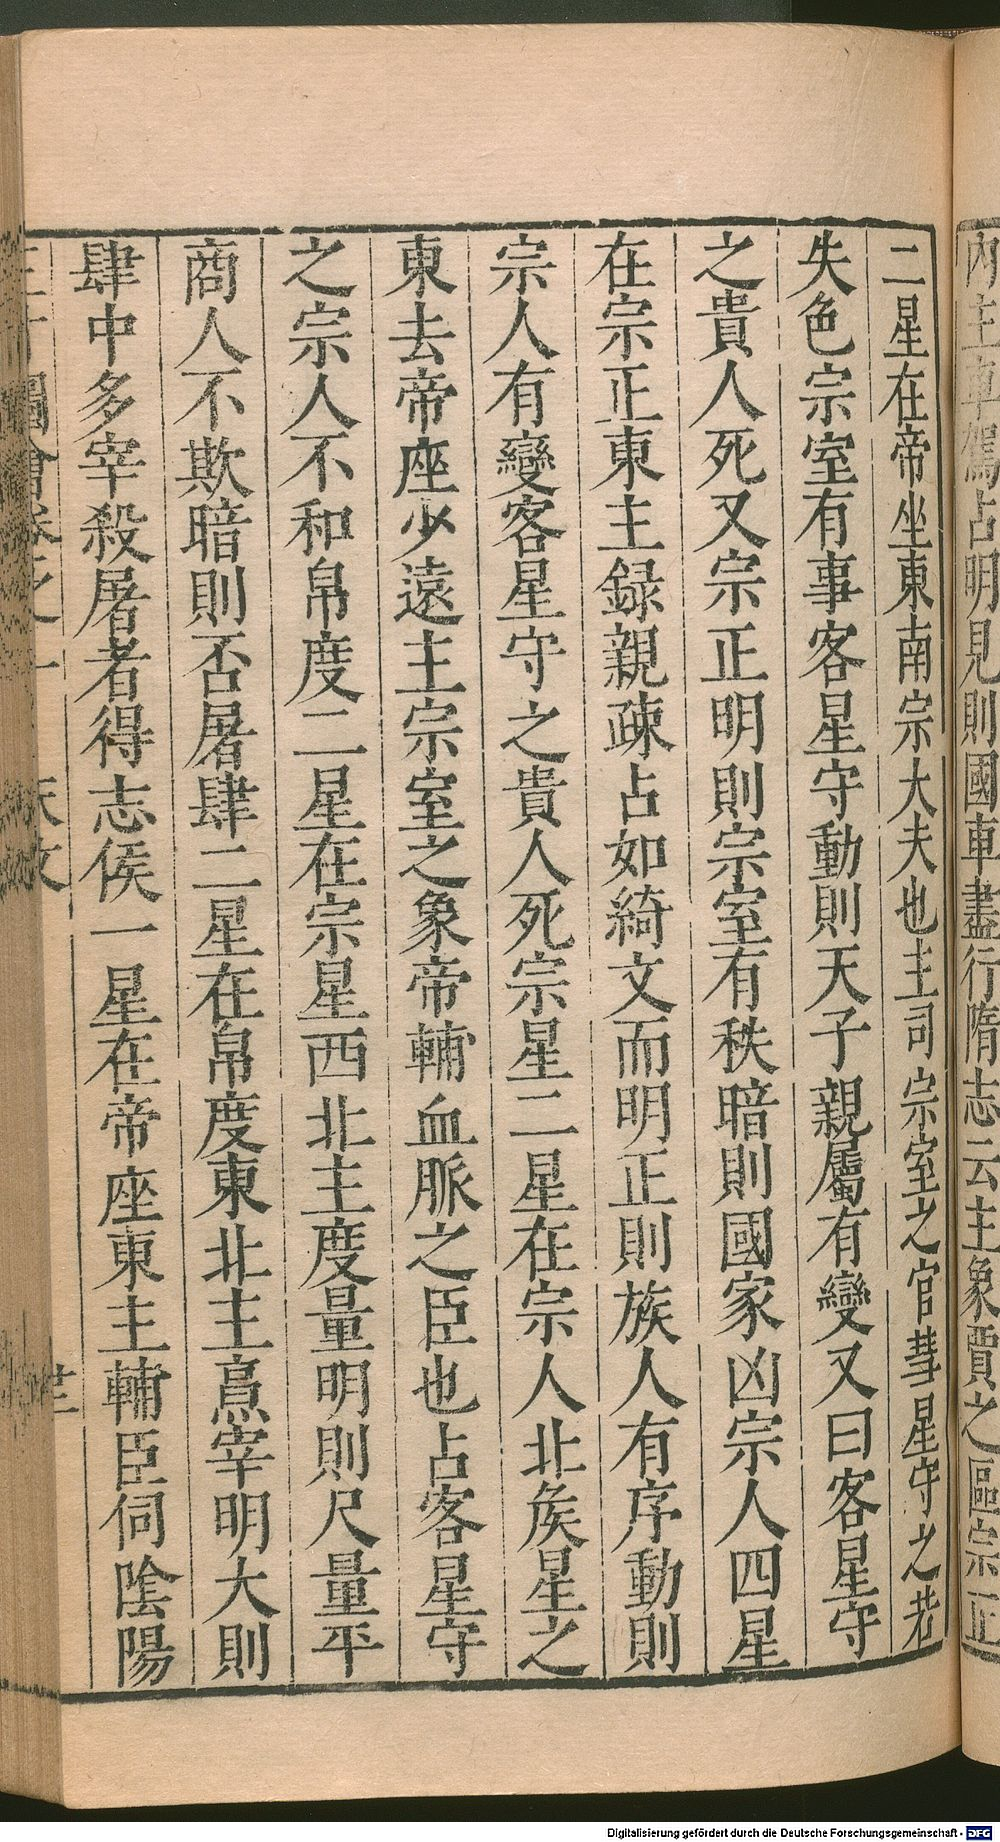 內主車駕占明見則國車盡行隋志云主象賈之區宗正
二星在帝坐東南宗大夫也主司宗室之官彗星守之若
失色宗室有事客星守動則天子親屬有變又曰客星守
之貴人死又宗正明則宗室有秩暗則國家凶宗人四星
在宗正東主録親疎占如綺文而明正則族人有序動則
宗人有變客星守之貴人死宗星二星在宗人北矦星之
東去帝座少遠主宗室之象帝輔血脈之臣也占客星守
之宗人不和帛度二星在宗星西北主度量明則尺量平
商人不欺暗則否屠肆二星在帛度東北主烹宰明大則
肆中多宰殺屠者得志侯一星在帝座東主輔臣伺陰陽
圖會卷之一 天文
Digitalisierung gefördert durch die Deutsche Forschungsgemeinschaft - DFG